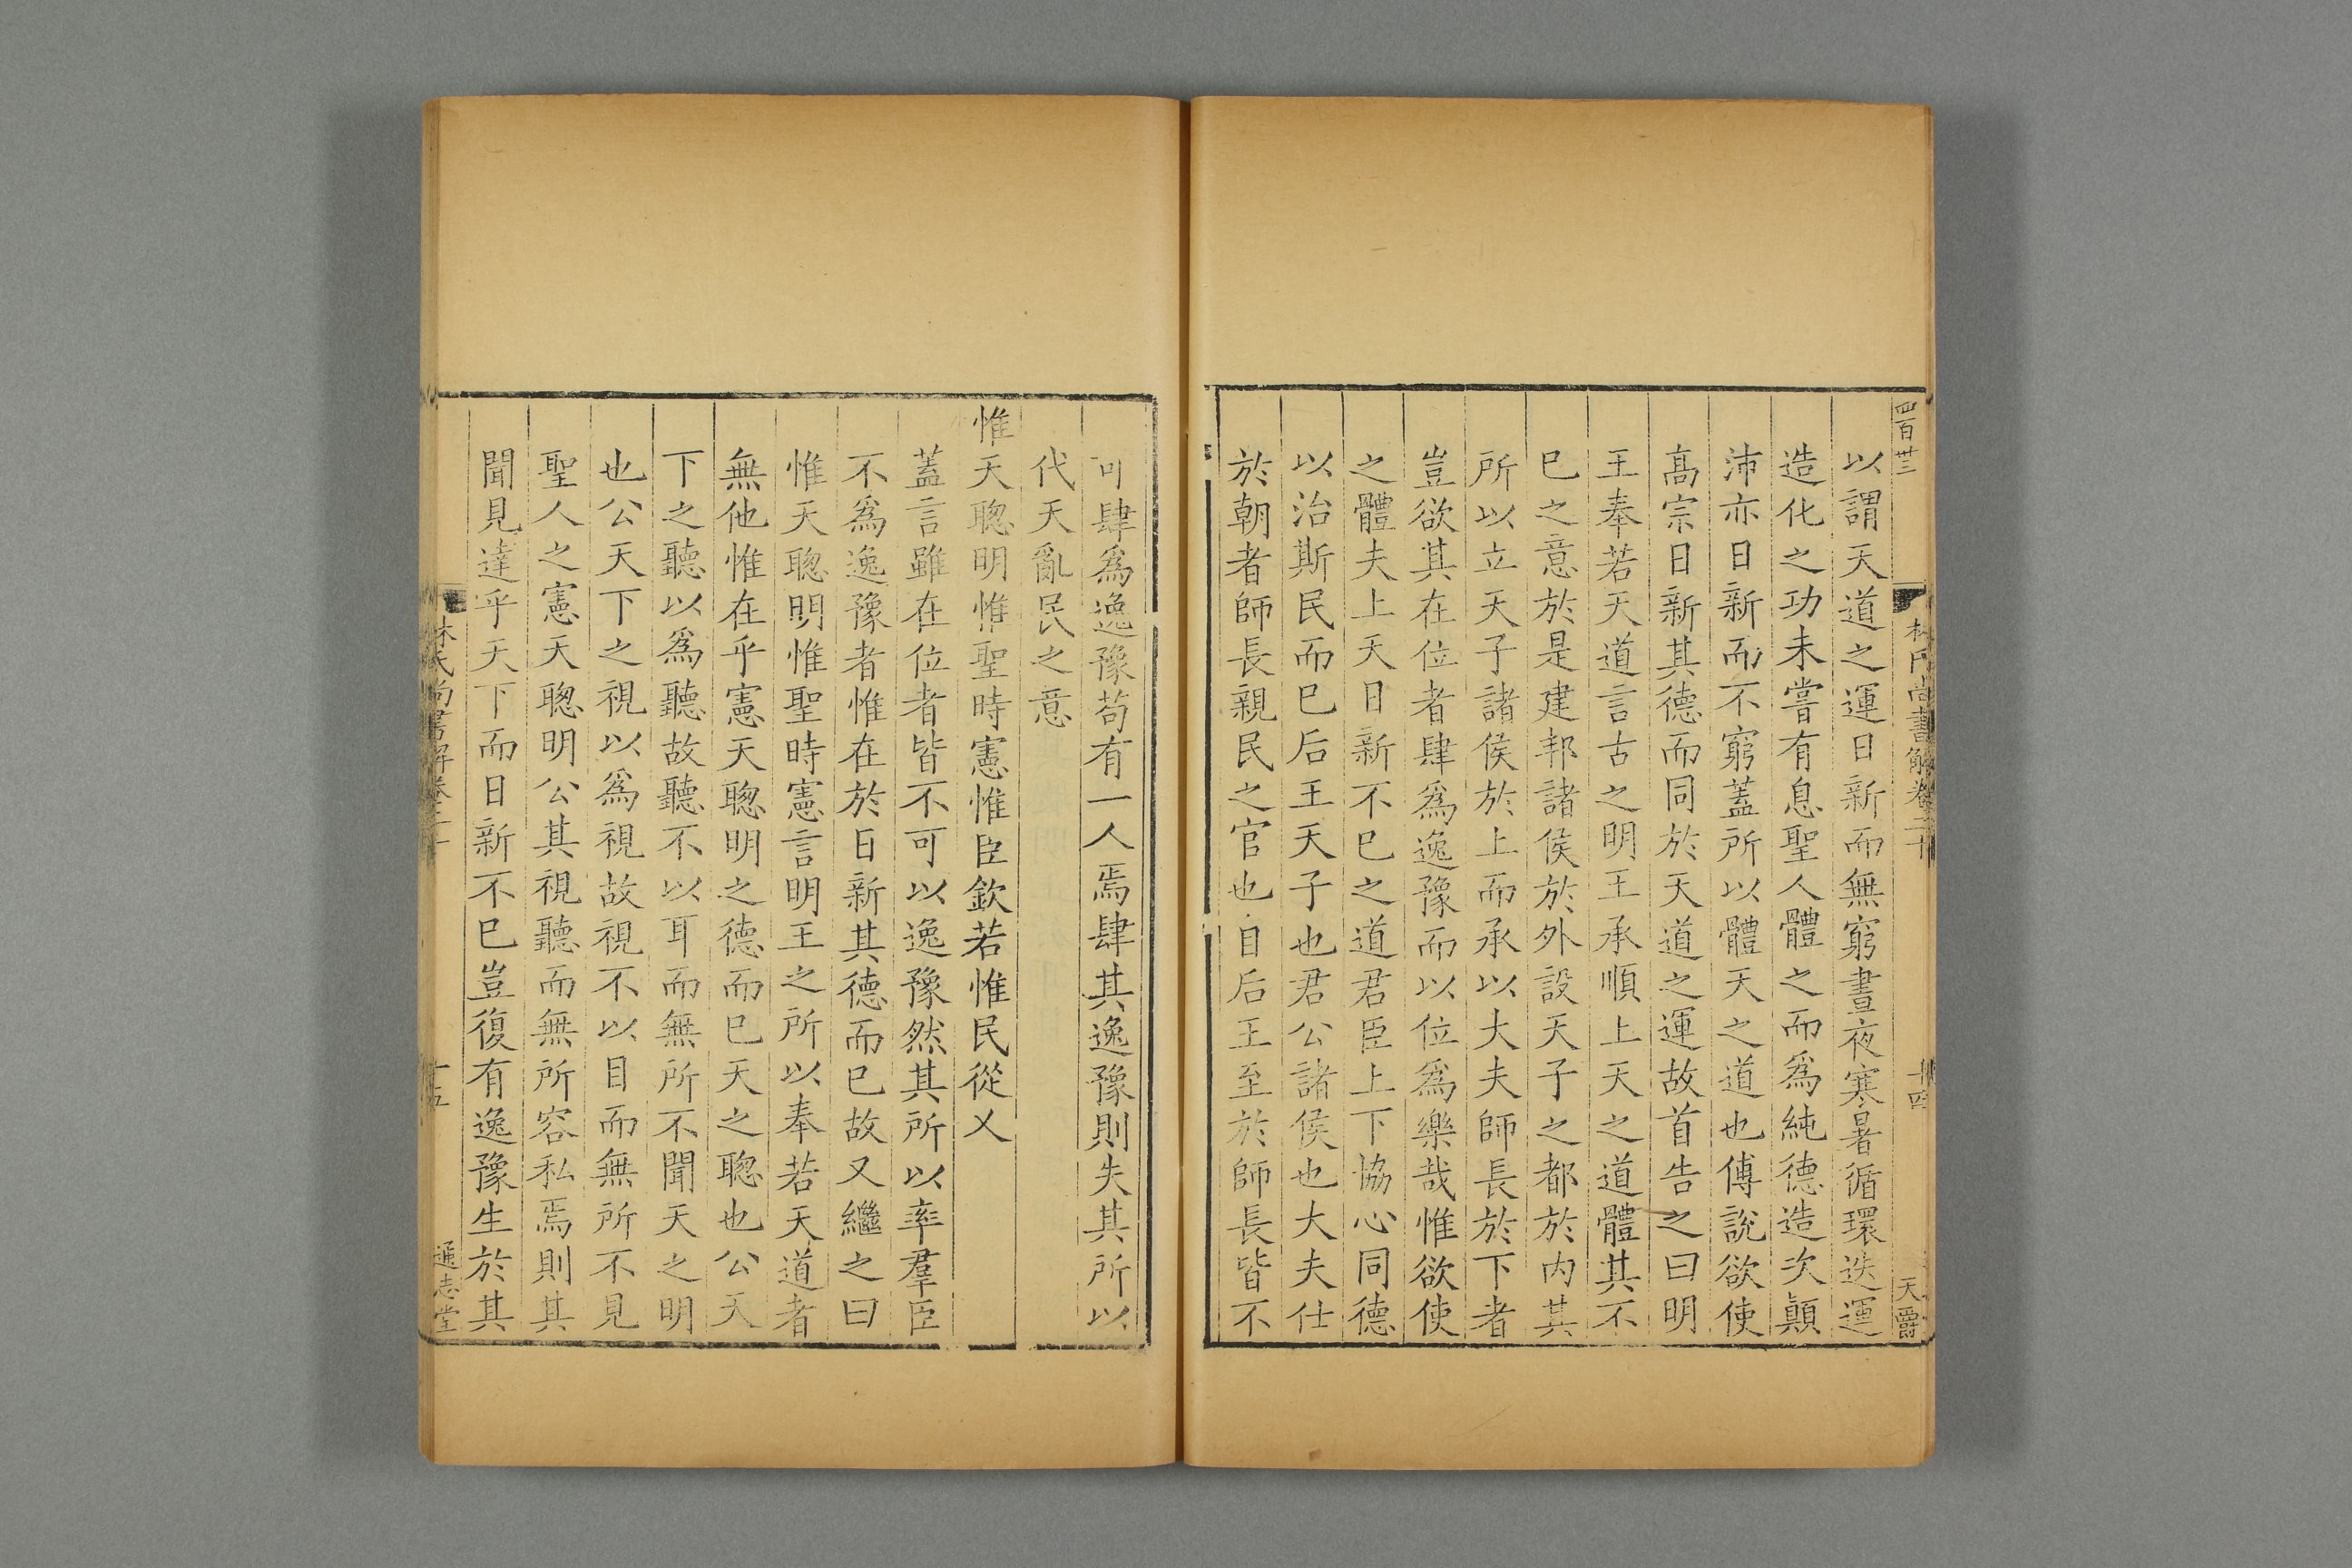 四百卅三
林氏尚書解卷二十
十四
天爵
以謂天道之運日新而無窮晝夜寒暑循環迭運
造化之功未嘗有息聖人體之而爲純德造次顚
沛亦日新而不窮蓋所以體天之道也傅說欲使
高宗日新其德而同於天道之運故首告之曰明
王奉若天道言古之明王承順上天之道體其不
已之意於是建邦諸侯於外設天子之都於内其
所以立天子諸侯於上而承以大夫師長於下者
豈欲其在位者肆爲逸豫而以位爲樂哉惟欲使
之體夫上天日新不已之道君臣上下協心同德
以治斯民而已后王天子也君公諸侯也大夫仕
於朝者師長親民之官也自后王至於師長皆不
可肆爲逸豫苟有一人焉肆其逸豫則失其所以
代天亂民之意
惟天聰明惟聖時憲惟臣欽若惟民從乂
蓋言雖在位者皆不可以逸豫然其所以率羣臣
不爲逸豫者惟在於日新其德而已故又繼之曰
惟天聰明惟聖時憲言明王之所以奉若天道者
無他惟在乎憲天聰明之德而已天之聰也公天
下之聽以爲聽故聽不以耳而無所不聞天之明
也公天下之視以爲視故視不以目而無所不見
聖人之憲天聰明公其視聽而無所容私焉則其
聞見達乎天下而日新不已豈復有逸豫生於其
林氏尚書解卷二十
十五
通志堂